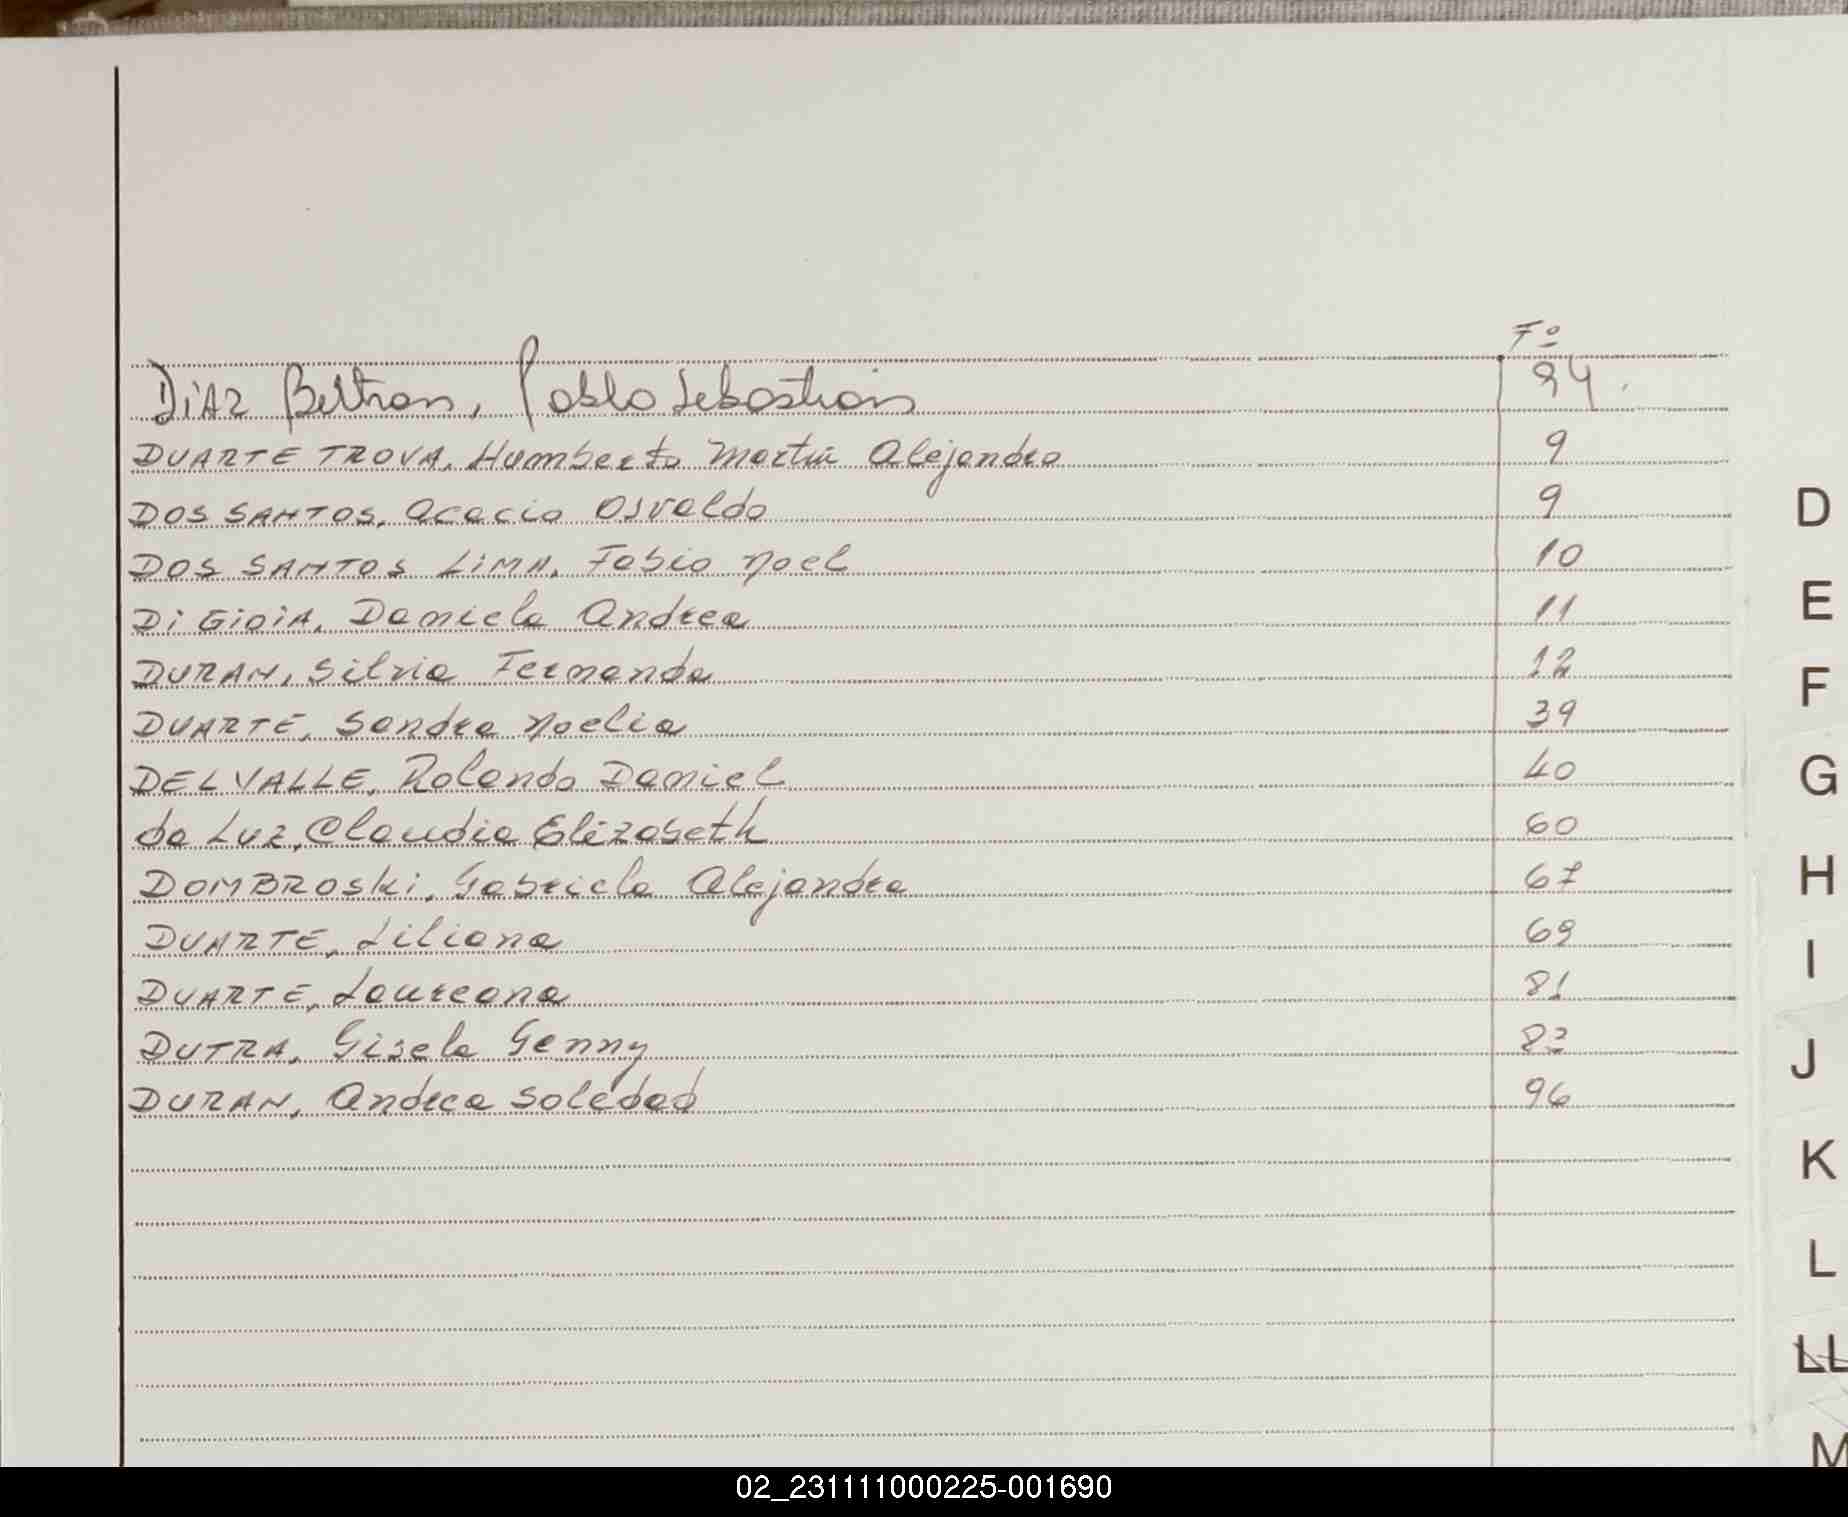 Fº
DiAZ Beltran, Pablo Sebastian 94.
DUARTE TROVA, Humberto Martin Alejandro 9
DOS SANTOS, Acacio Osvaldo 9
DOS SANTOS LiMA, Fabio Noel 10
Di GioiA, Daniela Andrea 11
DURAN, Silvia Fernanda 12
DUARTE, Sandra Noelia 39
DEL VALLE, Rolando Daniel 40
da Luz, Claudia Elizabeth 60
DOMBROSki, Gabriela Alejandra 67
DUARTE, Liliana 69
DUARTE, Laureana 81
DUTRA, Gisela Genny
DURAN, Andrea Soledad 96
D
E
F
G
H
I
J
K
L
LL
M
02_231111000225-001690